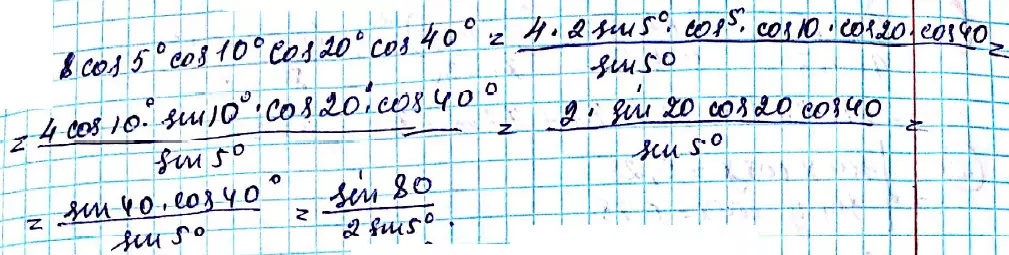 8 cos 5° cos 10° cos 20° cos 40° = (4 · 2 sin 5° · cos 5 · cos 10 · cos 20 · cos 40) / (sin 5°) =
= (4 cos 10° · sin 10° · cos 20° · cos 40°) / (sin 5°) = (2 · sin 20 cos 20 cos 40) / (sin 5°) =
= (sin 40 · cos 40°) / (sin 5°) = (sin 80) / (2 sin 5°).